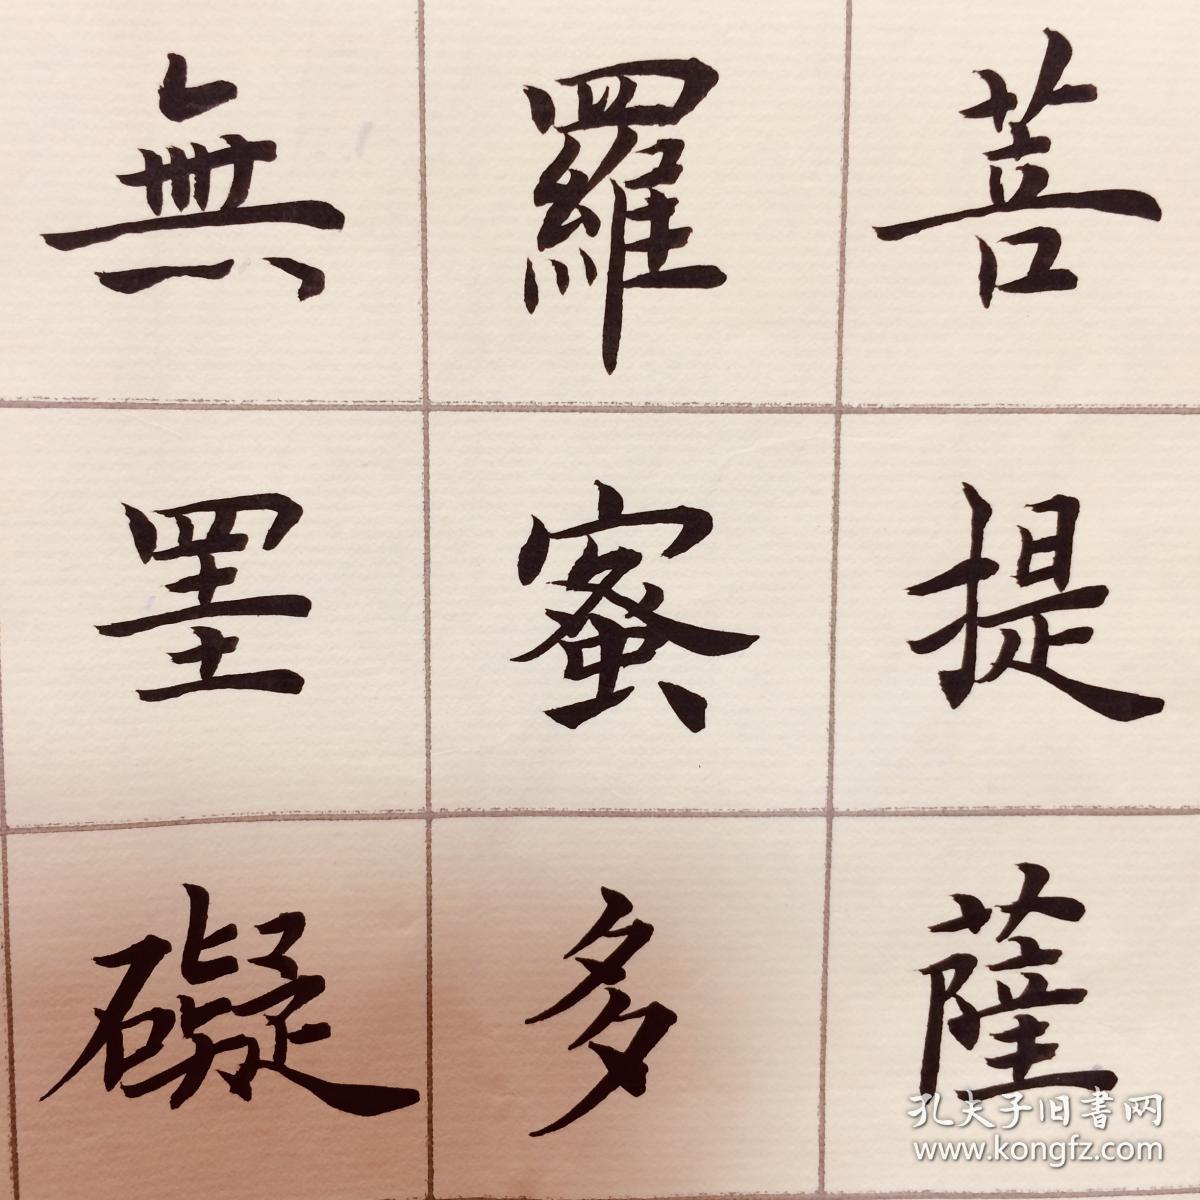 菩提薩
羅蜜多
無罣礙
孔夫子旧書网
www.kongfz.com